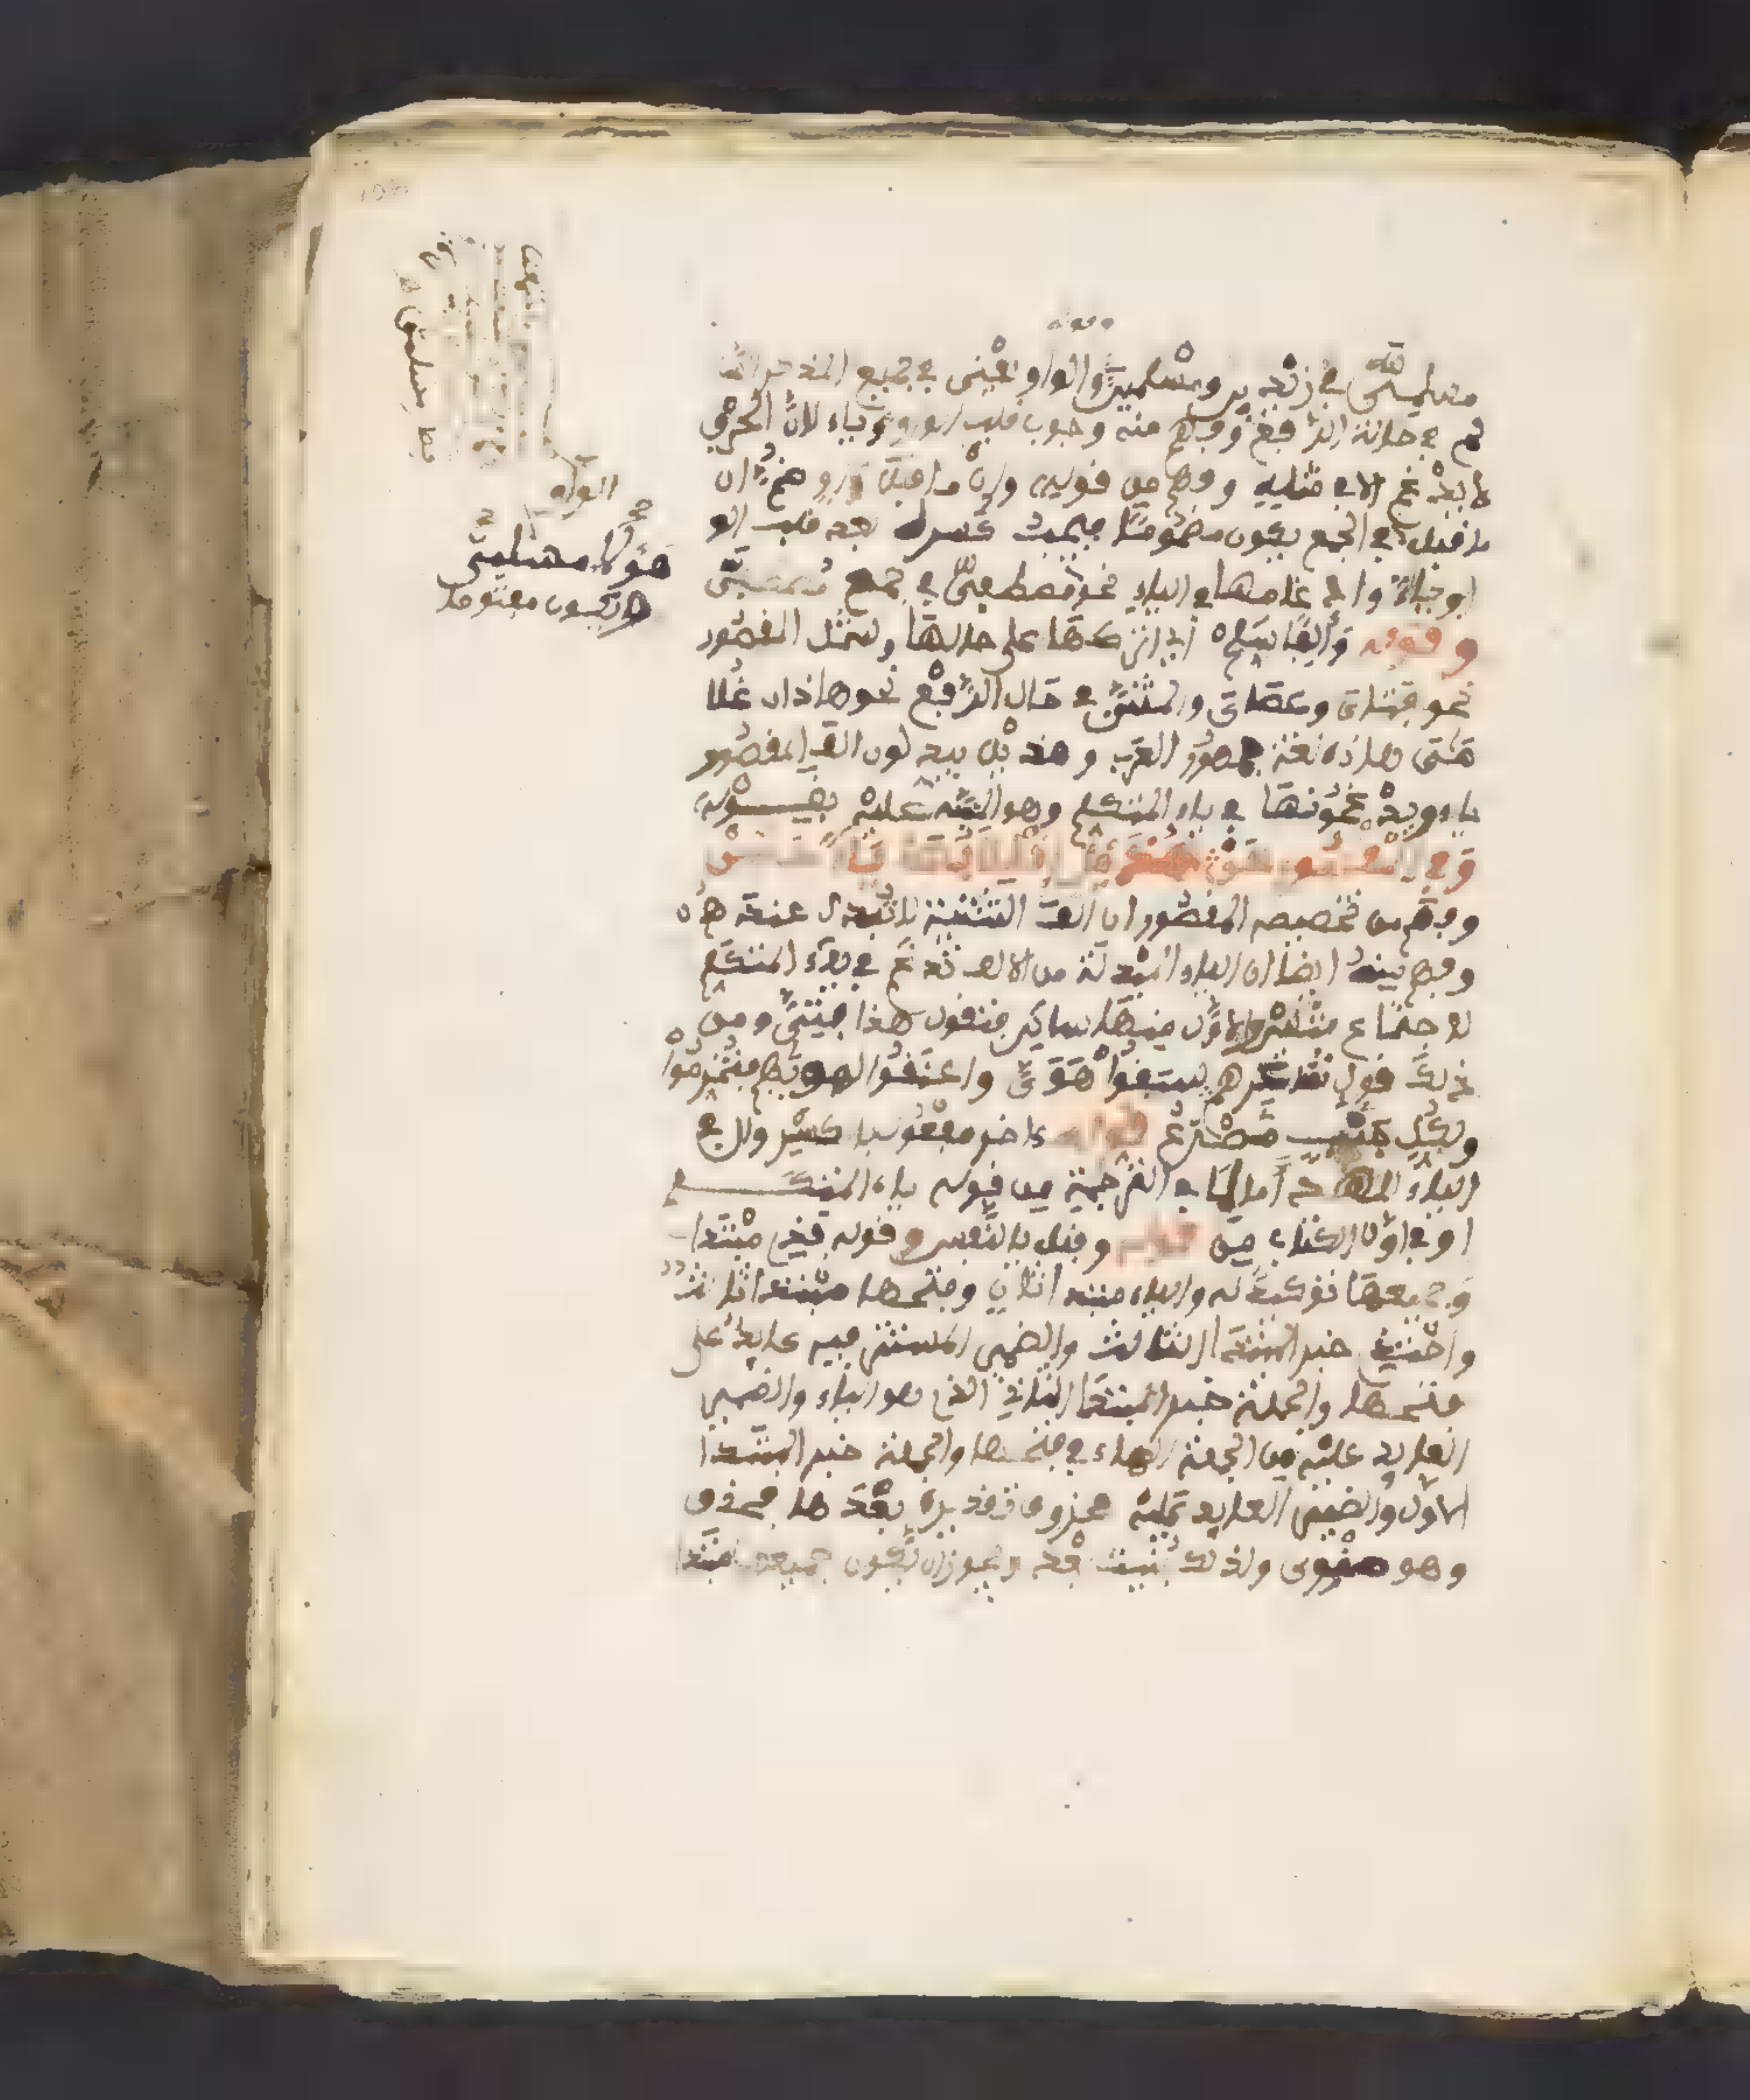 وقوله
مسلميّ في زيدين ومسلمين والواو يعني في جميع المذكر السا
لم في حالة الرّفع وفهم منه وجوب قلب الواو ياء لانّ الحرف
لا يدغم الا في مثليه وفهم من قوله وان ما قبل واو ضمّ ان
ما قبل في الجمع يكون مضموما فيجب كسره بعد قلب الو
او ياء وادغامها في الياء نحو مصطفيّ في جمع
وقوله وألفا سلم أي اتركها على حالها وشمل المقصور
نحو فتاي وعصاي والمثنى في حال الرّفع نحو هاذان غلا
مَاي هاذه لغة جمهور العرب وهذيل يبدلون الف المقصور
ياء ويدغمونها في ياء المتكلم وهو المنبه عليه بقوله
وفي المقصور عن هذيل انقلابها ياء حسن
وفهم من تخصيصه المقصور ان الف التثنية لا تبدل عندهم
وفهم منه ايضا ان الياء المبدلة من الالف تدغم في ياء المتكلم
لاجتماع مثلين والاول منهما ساكن فتقول هذا فتيّ ومن
ذلك قول شاعرهم سبقوا هويّ واعنقوا لهواهم فتخرموا
ولكل جنب مصرع قوله ءاخر مفعول باكسر وال في
الياء للعهد أمالها في الترجمة من قوله ياء المتكلم
او في اوّل الكتاب من قوله وقبل يا النفس وقوله فذي مبتدا
وجميعها توكيد له والياء مبتدا ثان وفتحها مبتدا ثالث
واحتذي خبر المبتدا الثالث والضمير المستتر فيه عايد على
فتحها والجملة خبر المبتدا الثاني الذي هو الياء والضمير
العايد عليه من الجملة الهاء في فتحها والجملة خبر المبتدا
الاول والضمير العايد عليه محذوف تقديره بعدها فحذف
وهو منوى ولذلك بنيت بعد ويجوز ان يكون جميعها مبتدا
الواو
هؤلاء مسلميّ